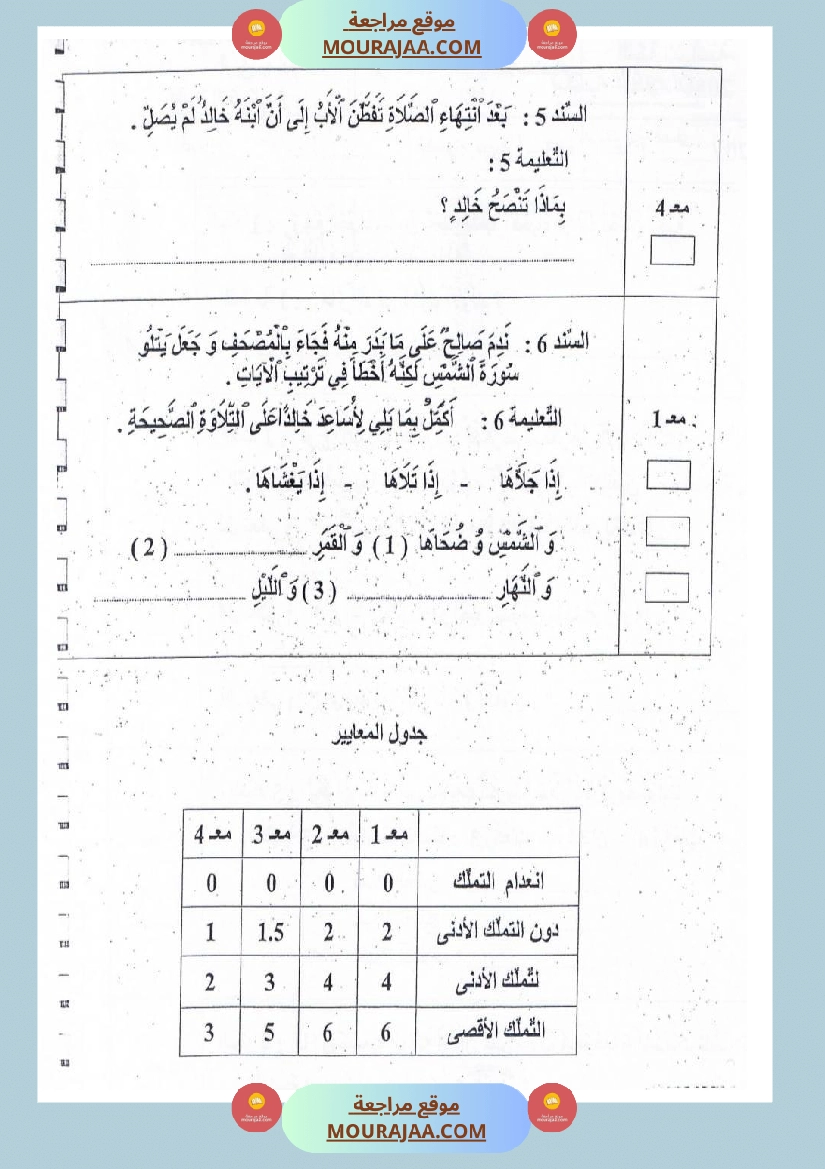 موقع مراجعة
MOURAJAA.COM
السّند 5 : بَعْدَ ٱنْتِهَاءِ ٱلصَّلَاةِ تَفَطَّنَ ٱلْأَبُ إِلَى أَنَّ ٱبْنَهُ خَالِدُ لَمْ يُصَلِّ .
التّعليمة 5 :
بِمَاذَا تَنْصَحُ خَالِدٍ ؟
معـ 4
السّند 6 : نَدِمَ صَالِحٌ عَلَى مَا بَدَرَ مِنْهُ فَجَاءَ بِٱلْمُصْحَفِ وَ جَعَلَ يَتْلُو
سُورَةَ ٱلشَّمْسِ لَكِنَّهُ أَخْطَأَ فِي تَرْتِيبِ ٱلْآيَاتِ .
التّعليمة 6 : أُكَمِّلُ بِمَا يَلِي لِأُسَاعِدَ خَالِدًا عَلَى ٱلتِّلَاوَةِ ٱلصَّحِيحَةِ .
معـ 1
إِذَا جَلاَّهَا - إِذَا تَلَاهَا - إِذَا يَغْشَاهَا .
وَ ٱلشَّمْسِ وَ ضُحَاهَا (1) وَ ٱلْقَمَرِ .................... (2)
وَ ٱلنَّهَارِ .................... (3) وَ ٱللَّيْلِ ....................
جدول المعايير
معـ 1 معـ 2 معـ 3 معـ 4
انعدام التملّك 0 0 0 0
دون التملّك الأدنى 2 2 1.5 1
التّملّك الأدنى 4 4 3 2
التّملّك الأقصى 6 6 5 3
موقع مراجعة
MOURAJAA.COM